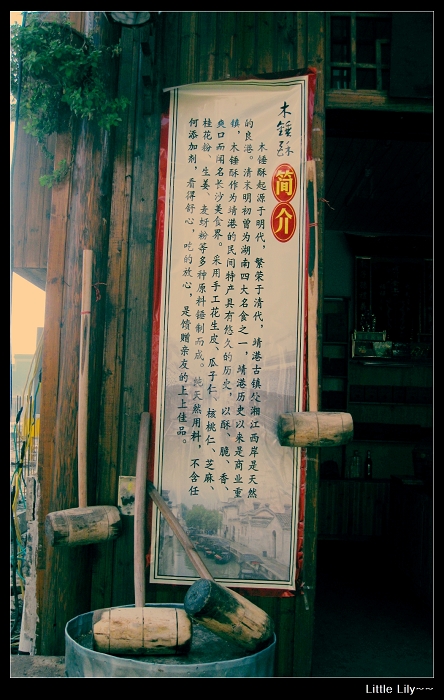 木锤酥
简介
木锤酥起源于明代,繁荣于清代,靖港古镇处湘江西岸是天然
的良港。清末明初曾为湖南四大名食之一,靖港历史以来是商业重
镇,木锤酥作为靖港的民间特产具有悠久的历史,以酥、脆、香、
爽口而闻名长沙美食界。采用手工花生皮、瓜子仁、核桃仁、芝麻、
桂花粉、生姜、麦蚜粉等多种原料锤制而成。纯天然用料,不含任
何添加剂,看得舒心,吃的放心,是馈赠亲友的上上佳品。
Little Lily~~